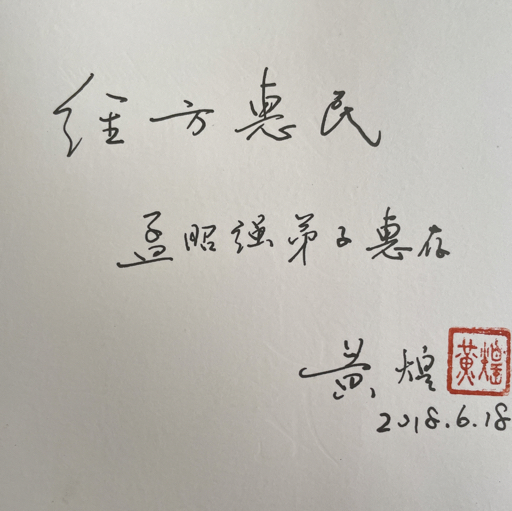 经方惠民
孟昭强弟子惠存
黄煌
黄煌
2018.6.18